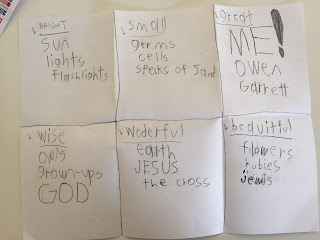 BRIGHT
sun
lights
flashlights
small
germs
cells
specks of sand
great
ME!
owen
Garrett
wise
owls
grown-ups
GOD
Woderful
earth
JESUS
the cross
beauitful
flowers
rubies
jewls